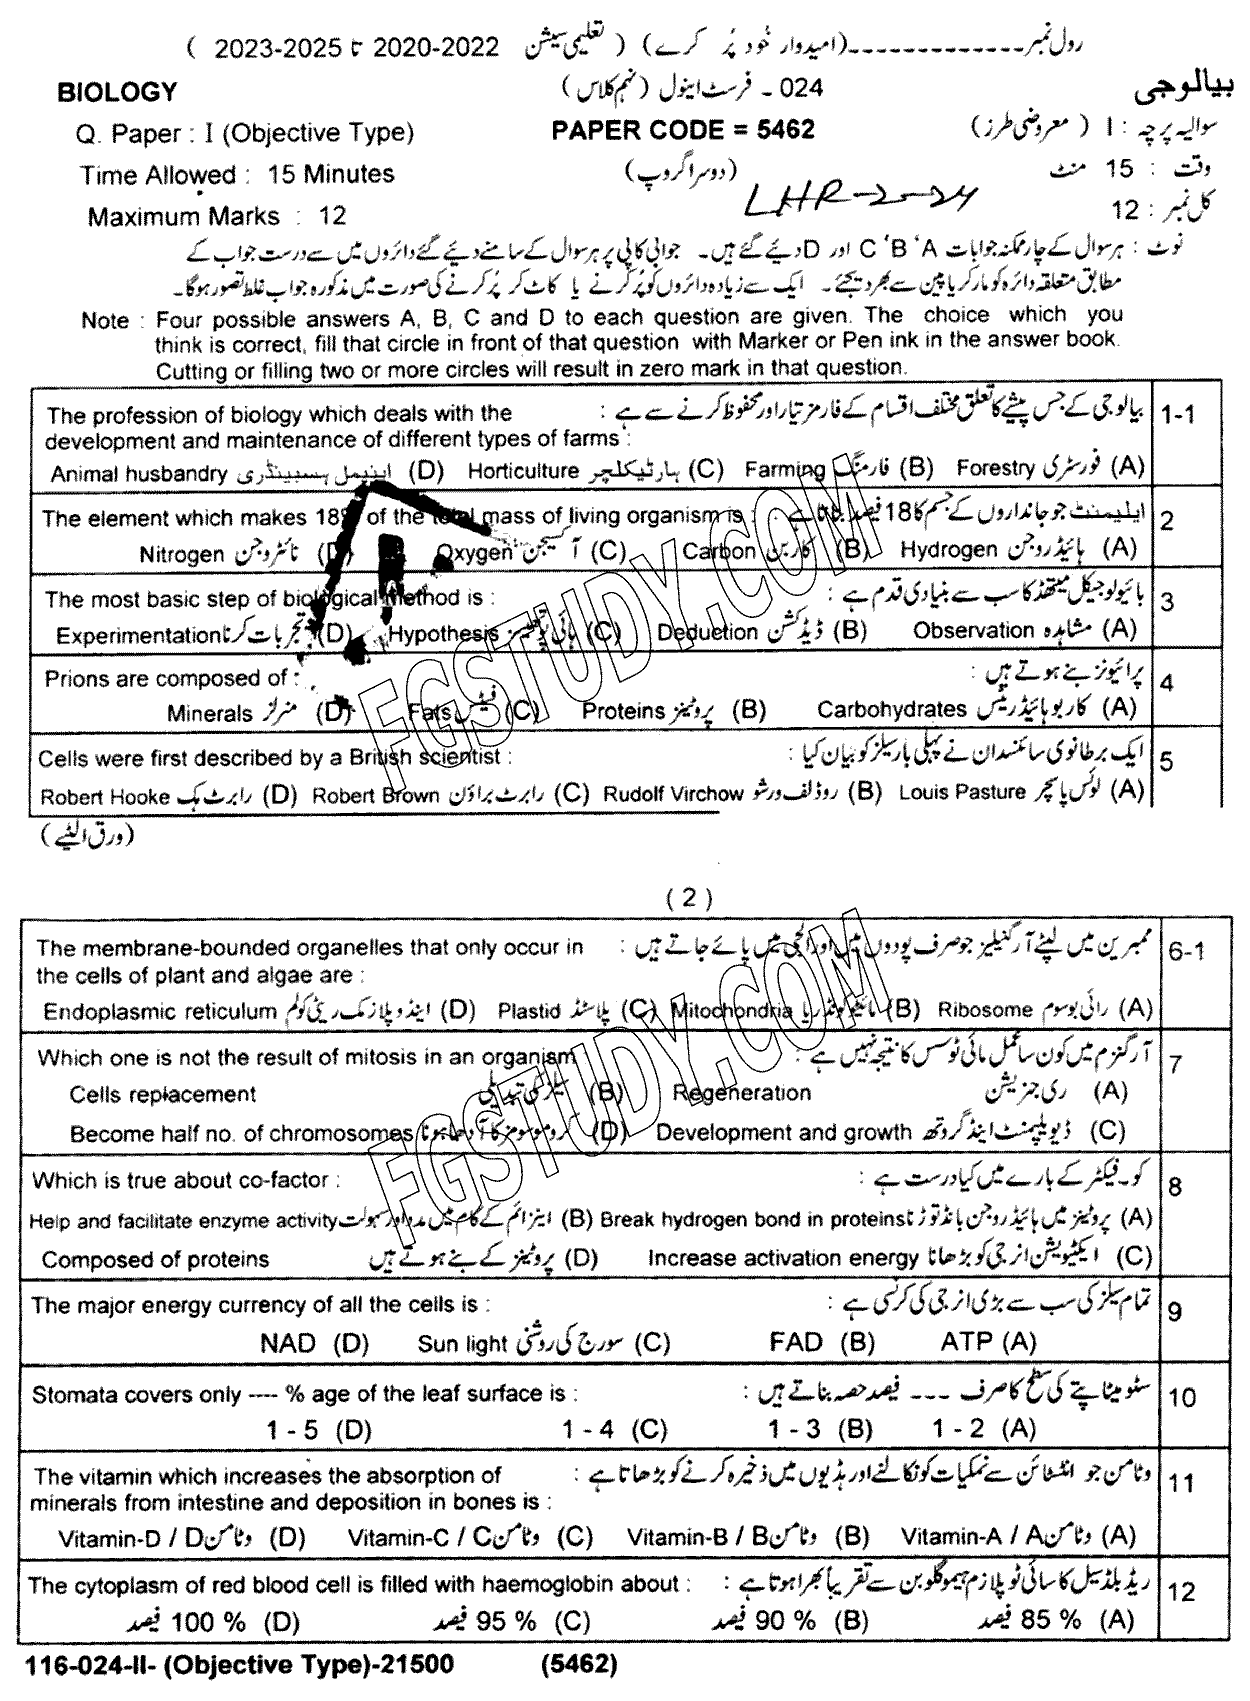 رول نمبر-------------(امیدوار خود پُر کرے) ( تعلیمی سیشن 2022-2020 تا 2025-2023 )
BIOLOGY 024 - فرسٹ اینول (نہم کلاس) بیالوجی
Q. Paper : I (Objective Type) PAPER CODE = 5462 سوالیہ پرچہ : I ( معروضی طرز )
Time Allowed : 15 Minutes (دوسرا گروپ) وقت : 15 منٹ
Maximum Marks : 12 LHR-2-24 کل نمبر : 12
نوٹ : ہر سوال کے چار ممکنہ جوابات A ‘B ‘C اور D دیئے گئے ہیں۔ جوابی کاپی پر ہر سوال کے سامنے دیئے گئے دائروں میں سے درست جواب کے
مطابق متعلقہ دائرہ کو مارکر یا پین سے بھر دیجئے۔ ایک سے زیادہ دائروں کو پُر کرنے یا کاٹ کر پُر کرنے کی صورت میں مذکورہ جواب غلط تصور ہوگا۔
Note : Four possible answers A, B, C and D to each question are given. The choice which you
think is correct, fill that circle in front of that question with Marker or Pen ink in the answer book.
Cutting or filling two or more circles will result in zero mark in that question.
The profession of biology which deals with the بیالوجی کے جس پیشے کا تعلق مختلف اقسام کے فارمز تیار اور محفوظ کرنے سے ہے : 1-1
development and maintenance of different types of farms :
Animal husbandry اینیمل ہسبینڈری (D) Horticulture ہارٹیکلچر (C) Farming فارمنگ (B) Forestry فورسٹری (A)
The element which makes 18% of the total mass of living organism is : ایلیمنٹ جو جانداروں کے جسم کا 18 فیصد بناتا ہے : 2
Nitrogen نائٹروجن (D) Oxygen آکسیجن (C) Carbon کاربن (B) Hydrogen ہائیڈروجن (A)
The most basic step of biological method is : بائیولوجیکل میتھڈ کا سب سے بنیادی قدم ہے : 3
Experimentation تجربات کرنا (D) Hypothesis ہائی پوتھیسز (C) Deduction ڈیڈکشن (B) Observation مشاہدہ (A)
Prions are composed of : پرائیونز بنے ہوتے ہیں : 4
Minerals منرلز (D) Fats فیٹس (C) Proteins پروٹینز (B) Carbohydrates کاربوہائیڈریٹس (A)
Cells were first described by a British scientist : ایک برطانوی سائنسدان نے پہلی بار سیلز کو بیان کیا : 5
Robert Hooke رابرٹ ہک (D) Robert Brown رابرٹ براؤن (C) Rudolf Virchow روڈلف ورشو (B) Louis Pasture لوئس پاسچر (A)
(ورق الٹیے)
( 2 )
The membrane-bounded organelles that only occur in ممبرین میں لپٹے آرگنیلیز جو صرف پودوں میں اور الجی میں پائے جاتے ہیں : 6-1
the cells of plant and algae are :
Endoplasmic reticulum اینڈوپلازمک ریٹی کولم (D) Plastid پلاسٹڈ (C) Mitochondria مائیٹوکونڈریا (B) Ribosome رائبوسوم (A)
Which one is not the result of mitosis in an organism : آرگنزم میں کون سا عمل مائی ٹوسس کا نتیجہ نہیں ہے : 7
Cells replacement سیلز کی تبدیلی (B) Regeneration ری جنریشن (A)
Become half no. of chromosomes کروموسومز کا آدھا ہونا (D) Development and growth ڈیویلپمنٹ اینڈ گروتھ (C)
Which is true about co-factor : کو-فیکٹر کے بارے میں کیا درست ہے : 8
Help and facilitate enzyme activity اینزائم کے کام میں مدد اور سہولت (B) Break hydrogen bond in proteins پروٹینز میں ہائیڈروجن بانڈ توڑنا (A)
Composed of proteins پروٹینز کے بنے ہوتے ہیں (D) Increase activation energy ایکٹیویشن انرجی کو بڑھانا (C)
The major energy currency of all the cells is : تمام سیلز کی سب سے بڑی انرجی کی کرنسی ہے : 9
NAD (D) Sun light سورج کی روشنی (C) FAD (B) ATP (A)
Stomata covers only ---- % age of the leaf surface is : سٹومیٹا پتے کی سطح کا صرف --- فیصد حصہ بناتے ہیں : 10
1 - 5 (D) 1 - 4 (C) 1 - 3 (B) 1 - 2 (A)
The vitamin which increases the absorption of وٹامن جو انٹسٹائن سے نمکیات کو نکالنے اور ہڈیوں میں ذخیرہ کرنے کو بڑھاتا ہے : 11
minerals from intestine and deposition in bones is :
Vitamin-D / Dوٹامن (D) Vitamin-C / Cوٹامن (C) Vitamin-B / Bوٹامن (B) Vitamin-A / Aوٹامن (A)
The cytoplasm of red blood cell is filled with haemoglobin about : ریڈ بلڈ سیل کا سائی ٹوپلازم ہیموگلوبن سے تقریباً بھرا ہوتا ہے : 12
100 % فیصد (D) 95 % فیصد (C) 90 % فیصد (B) 85 % فیصد (A)
116-024-II- (Objective Type)-21500 (5462)
FGSTUDY.COM
FGSTUDY.COM